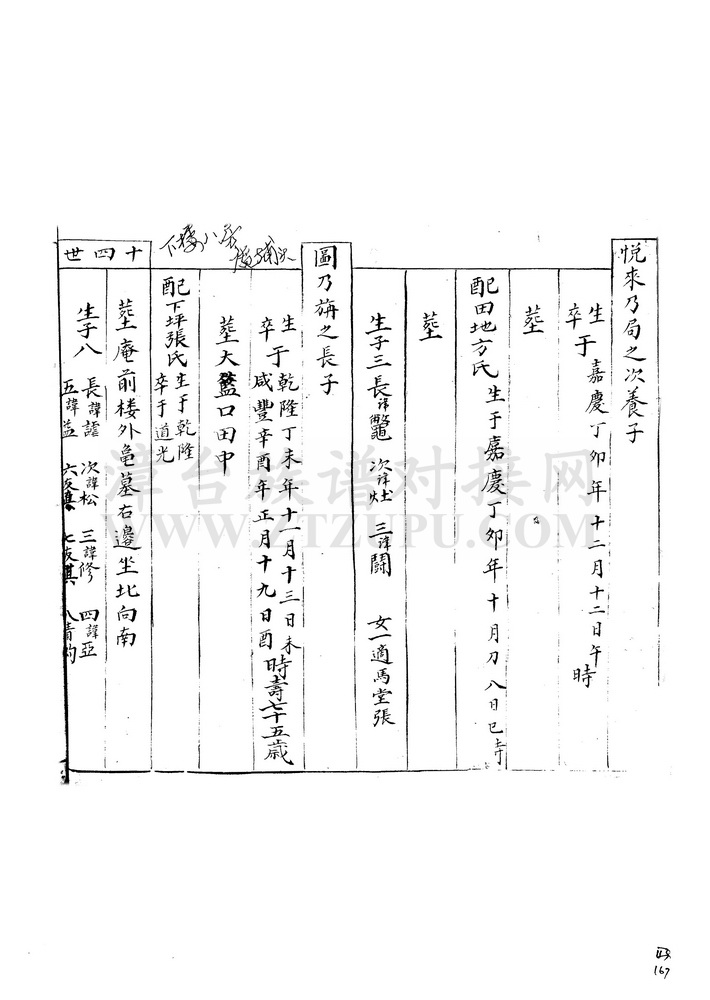 悦來乃局之次養子
生于嘉慶丁卯年十二月十二日午時
卒
塟
配田地方氏生于嘉慶丁卯年十月初八日巳時
塟
生子三長諱 次諱灶 三諱鬪 女一適馬堂張
圖乃旃之長子
生于乾隆丁未年十一月十三日未時壽七十五歲
卒于咸豐辛酉年正月十九日酉
塟大 口田中
配下坪張氏生于乾隆
卒于道光
下楼八
十四世
塟庵前楼外龟墓右邊坐北向南
生子八 長諱 次諱松 三諱修 四諱亞
五諱益 六 七 八清
漳台族谱对接网
WWW.ZTZUPU.COM
167